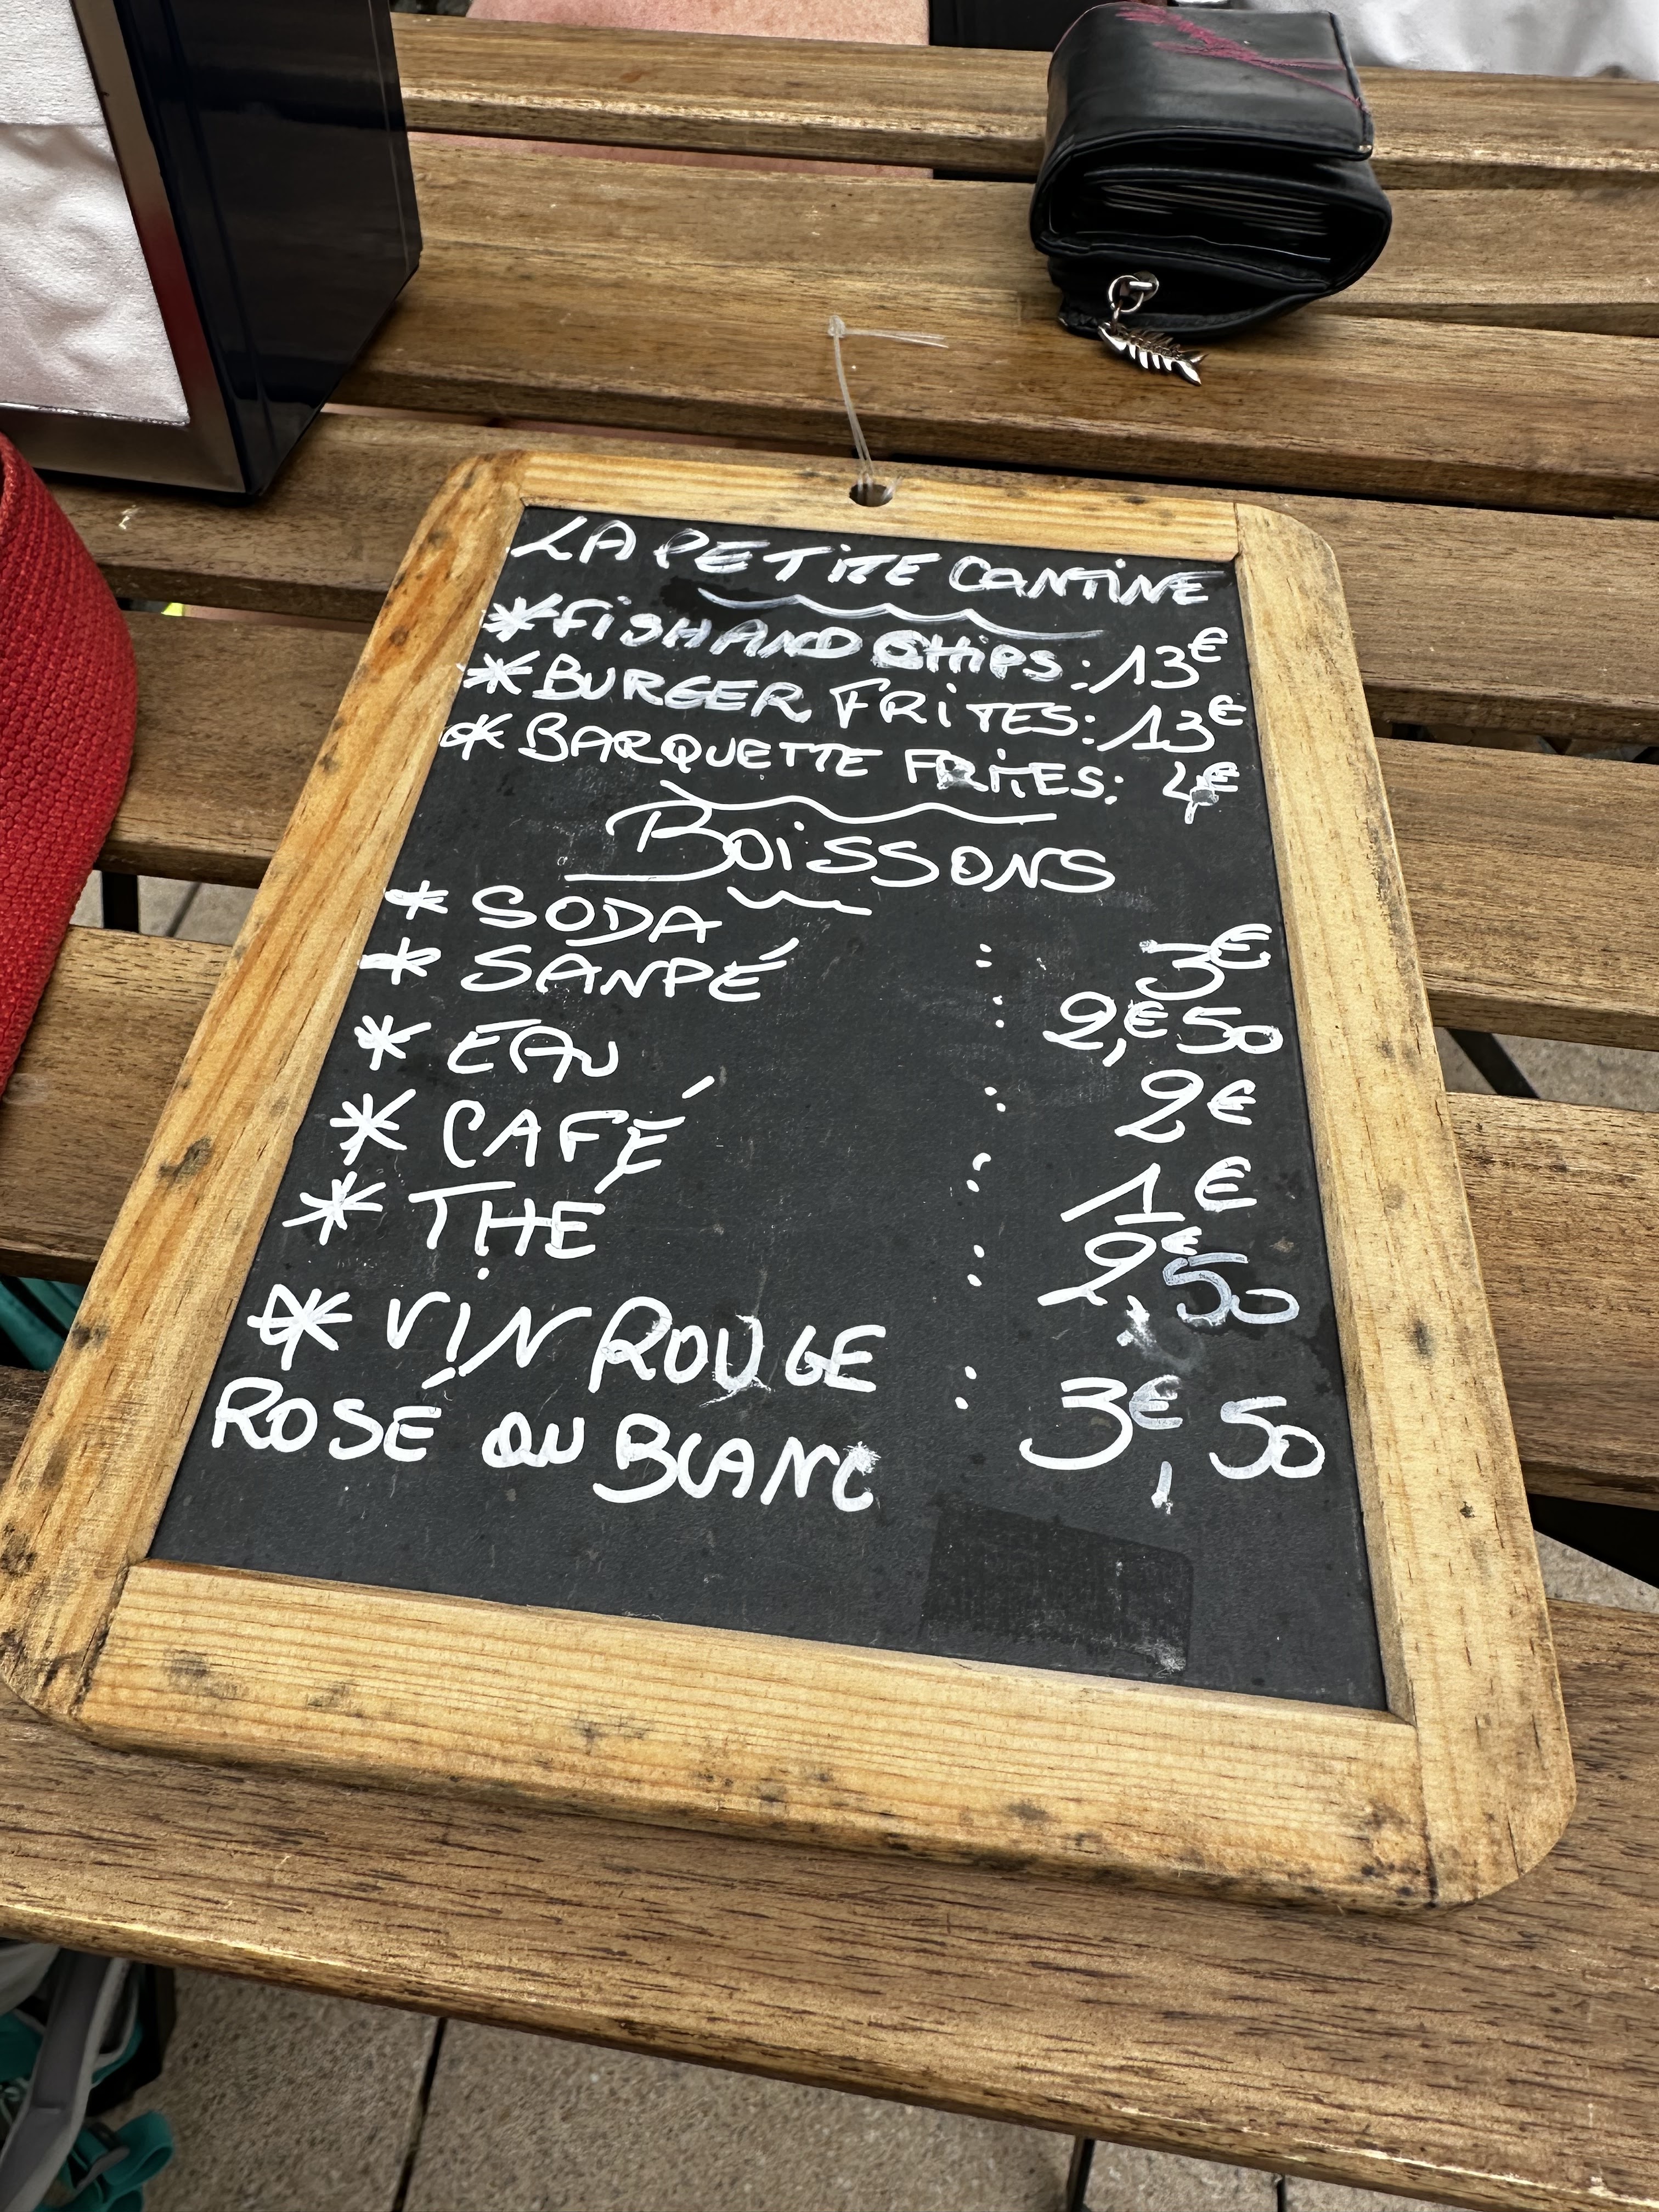 LA PETITE CANTINE
* FISH AND CHIPS : 13€
* BURGER FRITES : 13€
* BARQUETTE FRITES : 4€
BOISSONS
* SODA : 3€
* SANPÉ : 2,€50
* EAU : 2€
* CAFÉ : 1€
* THÉ : 2,€50
* VIN ROUGE : 3€,50
ROSÉ OU BLANC